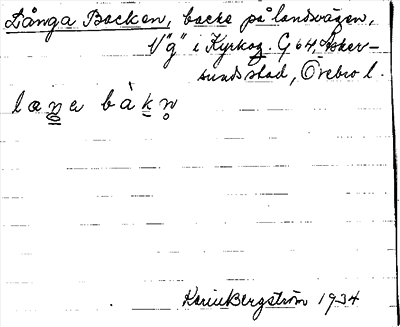 Långa Backen, backe på landsvägen,
V"g" i Kyrkog. G 64, Asker-
sunds stad, Örebro l.
laŋa bàkn̥
Karin Bergström 1934